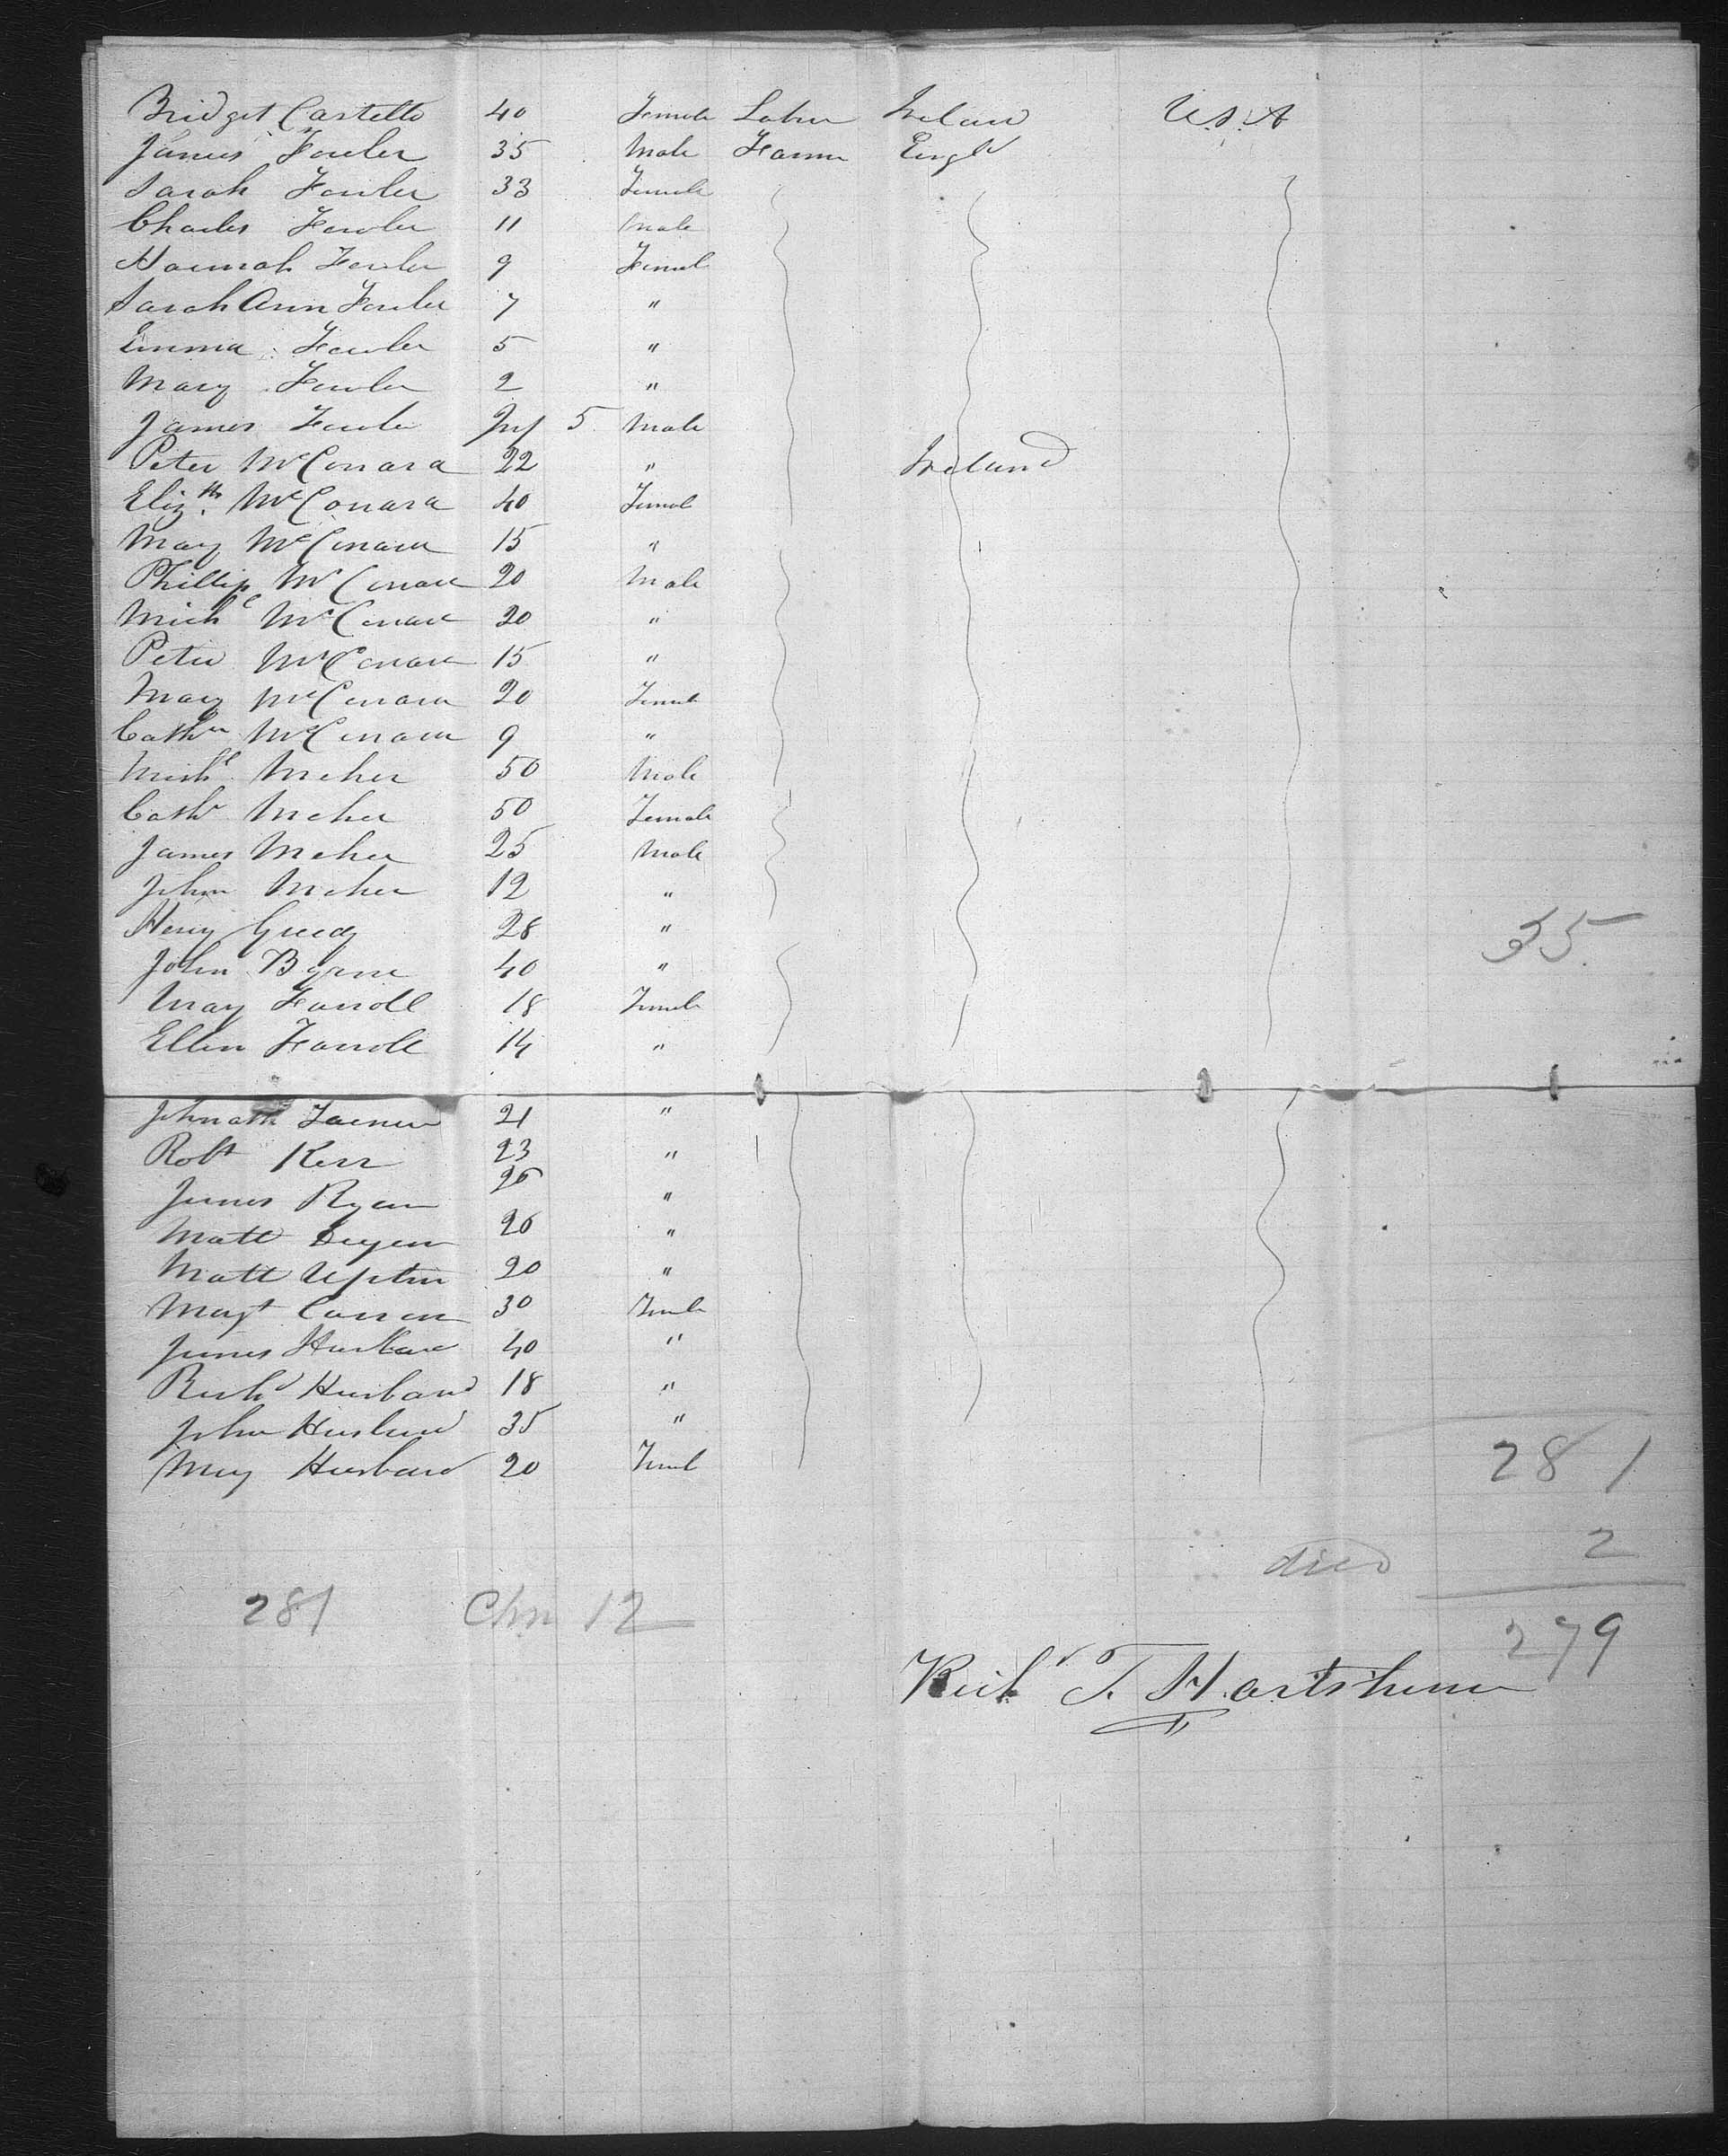 Bridget Castello 40 Female Labr Ireland U.S.A
James Fowler 35 Male Farmr Engld
Sarah Fowler 33 Female
Charles Fowler 11 Male
Hannah Fowler 9 Femal
Sarah Ann Fowler 7 "
Emma Fowler 5 "
Mary Fowler 2 "
James Fowler Inf 5 Male
Peter McConara 22 " Ireland
Elizth McConara 40 Femal
Mary McConara 15 "
Phillip McConara 20 Male
Michl McConara 20 "
Peter McConara 15 "
Mary McConara 20 Female
Cathn McConara 9 "
Michl Meher 50 Male
Cathr Meher 50 Female
James Meher 25 Male
John Meher 12 "
Henry 28 "
35
John Byrne 40 "
Mary Farroll 18 Female
Ellen Farroll 14 "
21 "
Robt Kerr 23 "
James Ryan 26 "
Matt 26 "
Matt Upton 20 "
Magt 30 Female
James Husband 40 "
Richd Husband 18 "
John Husband 35 "
Mary Husband 20 Femal
281
died 2
281 Chn 12
279
Richd T. Hartshorne